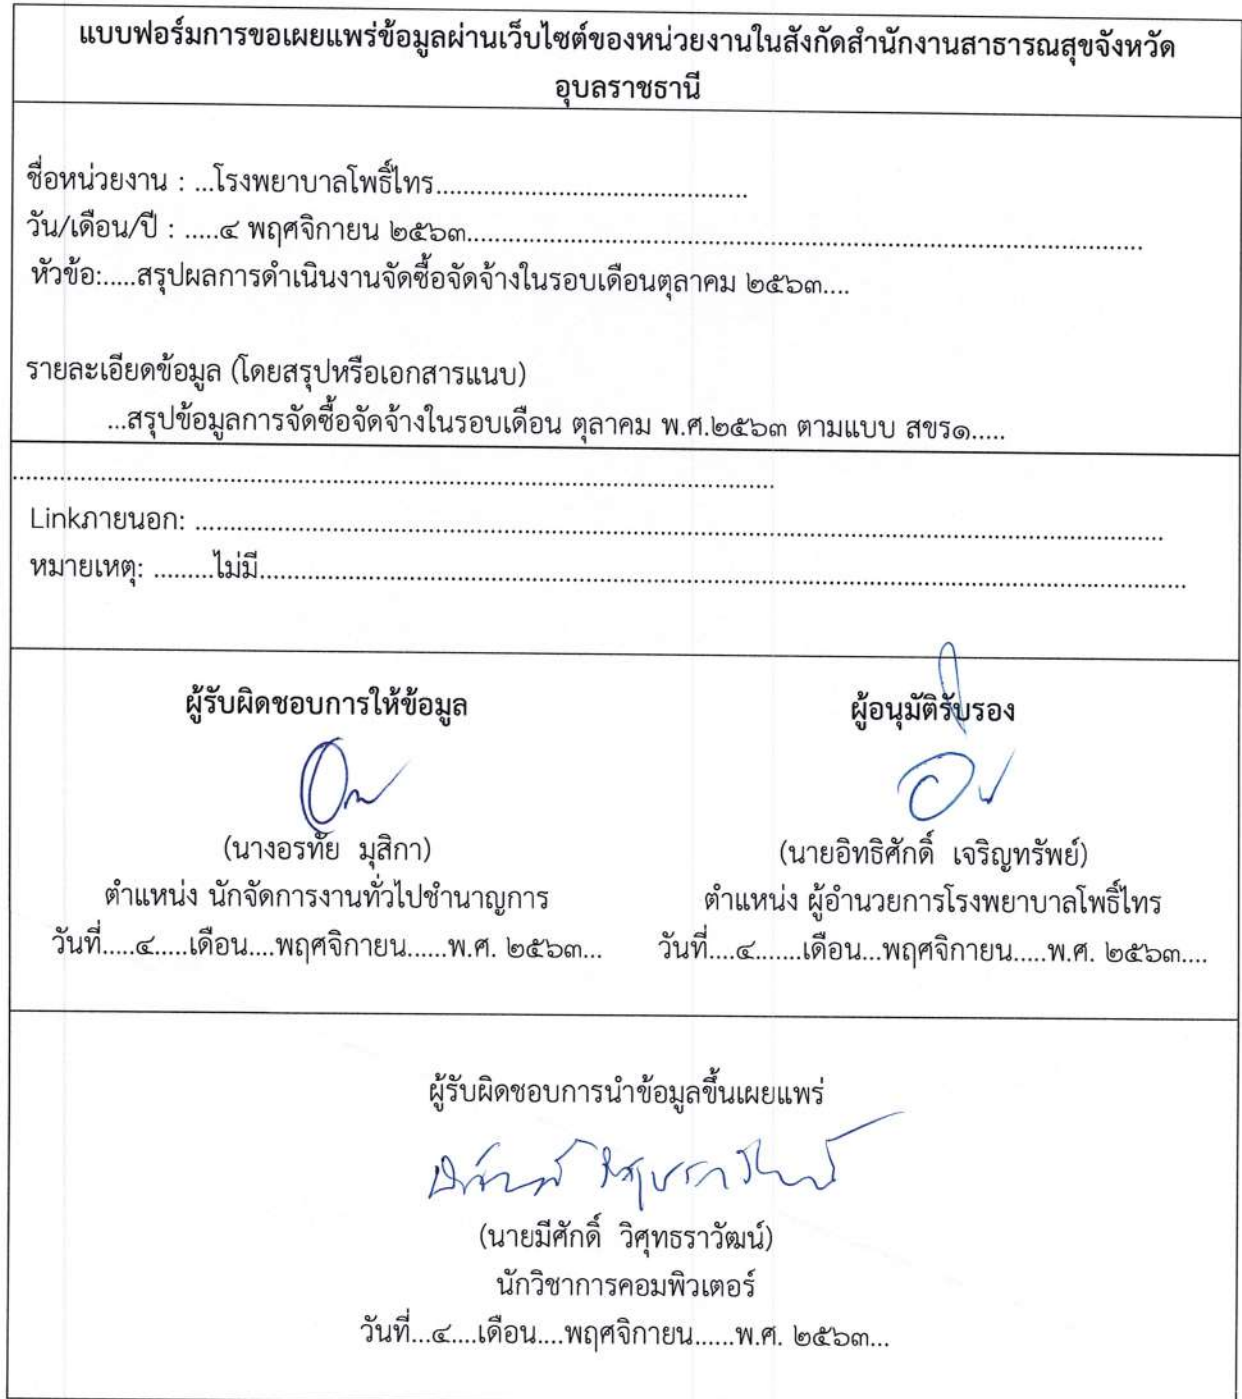 แบบฟอร์มการขอเผยแพร่ข้อมูลผ่านเว็บไซต์ของหน่วยงานในสังกัดสำนักงานสาธารณสุขจังหวัด
อุบลราชธานี
ชื่อหน่วยงาน : ...โรงพยาบาลโพธิ์ไทร..............................................
วัน/เดือน/ปี : .....๔ พฤศจิกายน ๒๕๖๓....................................................................................................
หัวข้อ:.....สรุปผลการดำเนินงานจัดซื้อจัดจ้างในรอบเดือนตุลาคม ๒๕๖๓....
รายละเอียดข้อมูล (โดยสรุปหรือเอกสารแนบ)
...สรุปข้อมูลการจัดซื้อจัดจ้างในรอบเดือน ตุลาคม พ.ศ.๒๕๖๓ ตามแบบ สขร๑.....
................................................................................................................
Linkภายนอก: ..............................................................................................................................................
หมายเหตุ: .........ไม่มี.......................................................................................................................................
ผู้รับผิดชอบการให้ข้อมูล ผู้อนุมัติรับรอง
(นางอรทัย มุสิกา) (นายอิทธิศักดิ์ เจริญทรัพย์)
ตำแหน่ง นักจัดการงานทั่วไปชำนาญการ ตำแหน่ง ผู้อำนวยการโรงพยาบาลโพธิ์ไทร
วันที่....๔.....เดือน....พฤศจิกายน......พ.ศ. ๒๕๖๓... วันที่....๔.......เดือน...พฤศจิกายน.....พ.ศ. ๒๕๖๓....
ผู้รับผิดชอบการนำข้อมูลขึ้นเผยแพร่
(นายมีศักดิ์ วิศุทธราวัฒน์)
นักวิชาการคอมพิวเตอร์
วันที่...๔....เดือน....พฤศจิกายน......พ.ศ. ๒๕๖๓...